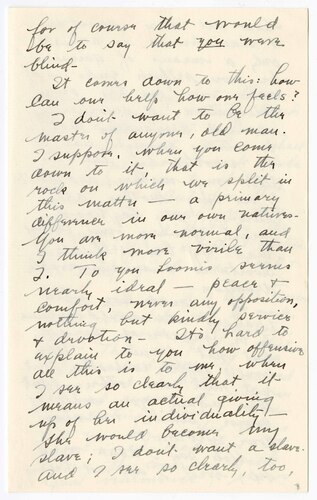 for of course that would
be to say that you were
blind-
It comes down to this: how
can one help how one feels?
I don't want to be the
master of anyone, old man.
I suppose, when you come
down to it, that is the
rock on which we split in
this matter — a primary
difference in our own natures-
You are more normal, and
I think more virile than
I. To you Loomis seems
nearly ideal — peace &
comfort, never any opposition,
nothing but kindly service
& devotion- It's hard to
explain to you how offensive
all this is to me, when
I see so clearly that it
means an actual giving
up of her individuality—
She would become my
slave; I don't want a slave-
And I see so clearly, too,